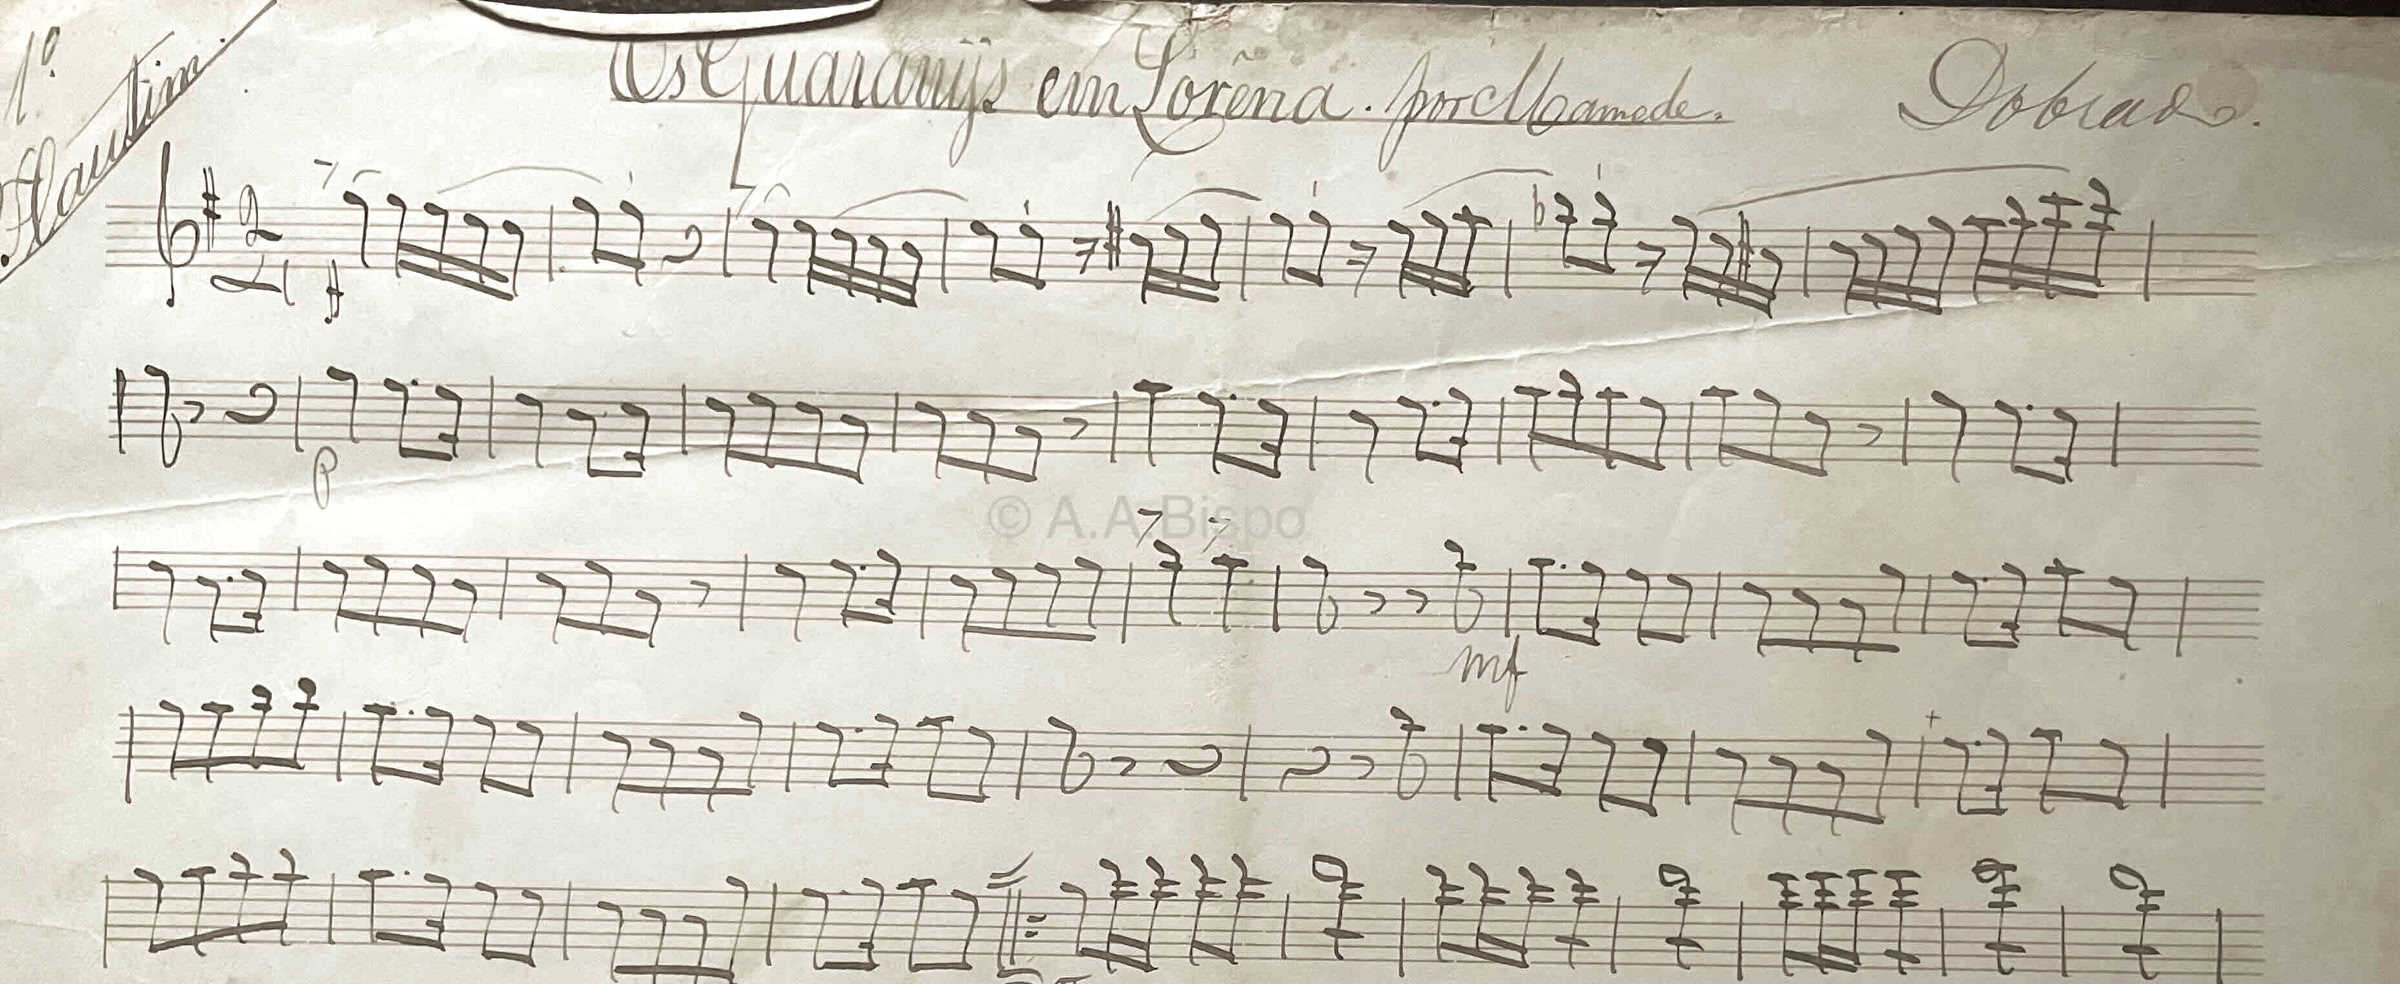 1º
Flautim.
Os Guaranijs em Lorena. por Mamede. Dobrado.
2
4
f
p
© A.A.Bispo
mf